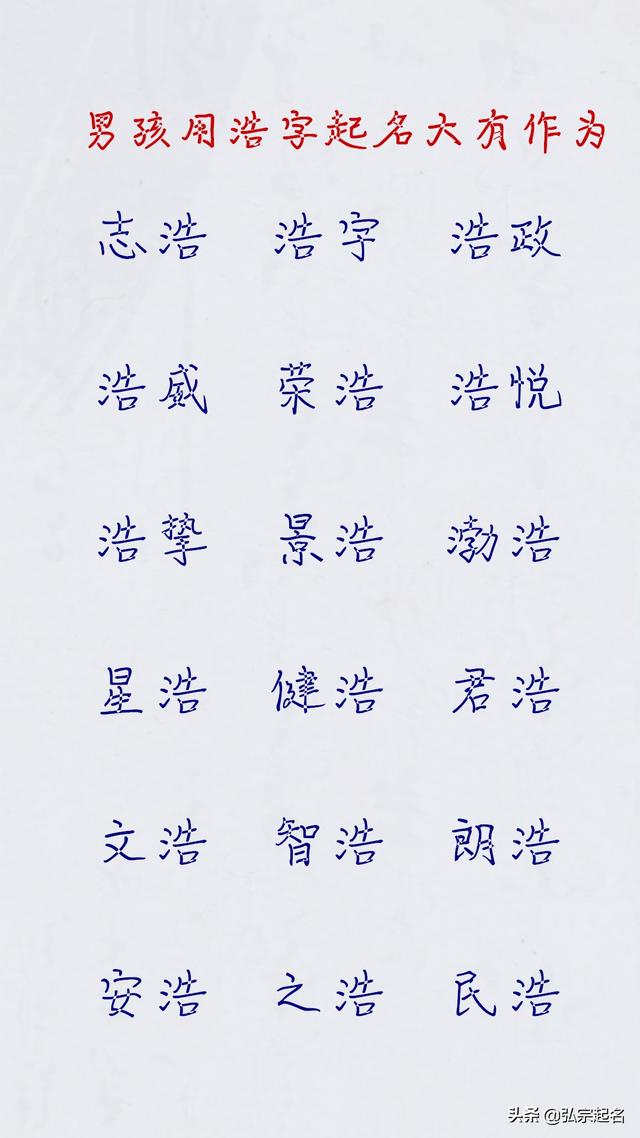 男孩用浩字起名大有作为
志浩 浩字 浩政
浩威 荣浩 浩悦
浩挚 景浩 渤浩
星浩 健浩 君浩
文浩 智浩 朗浩
安浩 之浩 民浩
头条 @弘宗起名